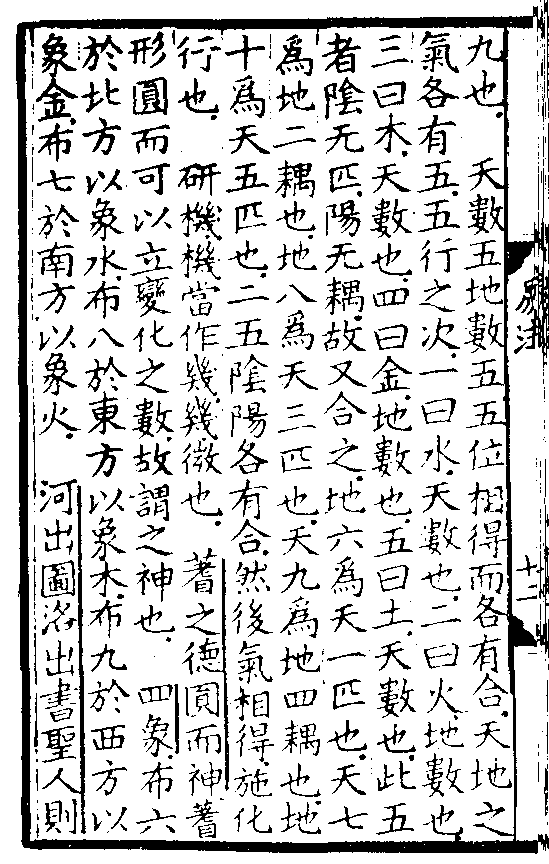 九也　天數五地數五五位相得而各有合天地之
氣各有五五行之次一曰水天數也二曰火地數也
三曰木天數也四曰金地數也五曰土天數也此五
者陰无匹陽无耦故又合之地六爲天一匹也天七
爲地二耦也地八爲天三匹也天九爲地四耦也地
十爲天五匹也二五陰陽各有合然後氣相得施化
行也　研機機當作幾幾微也　蓍之德圓而神蓍
形圓而可以立變化之數故謂之神也　四象布六
於北方以象水布八於東方以象木布九於西方以
象金布七於南方以象火　河出圖洛出書聖人則
十二